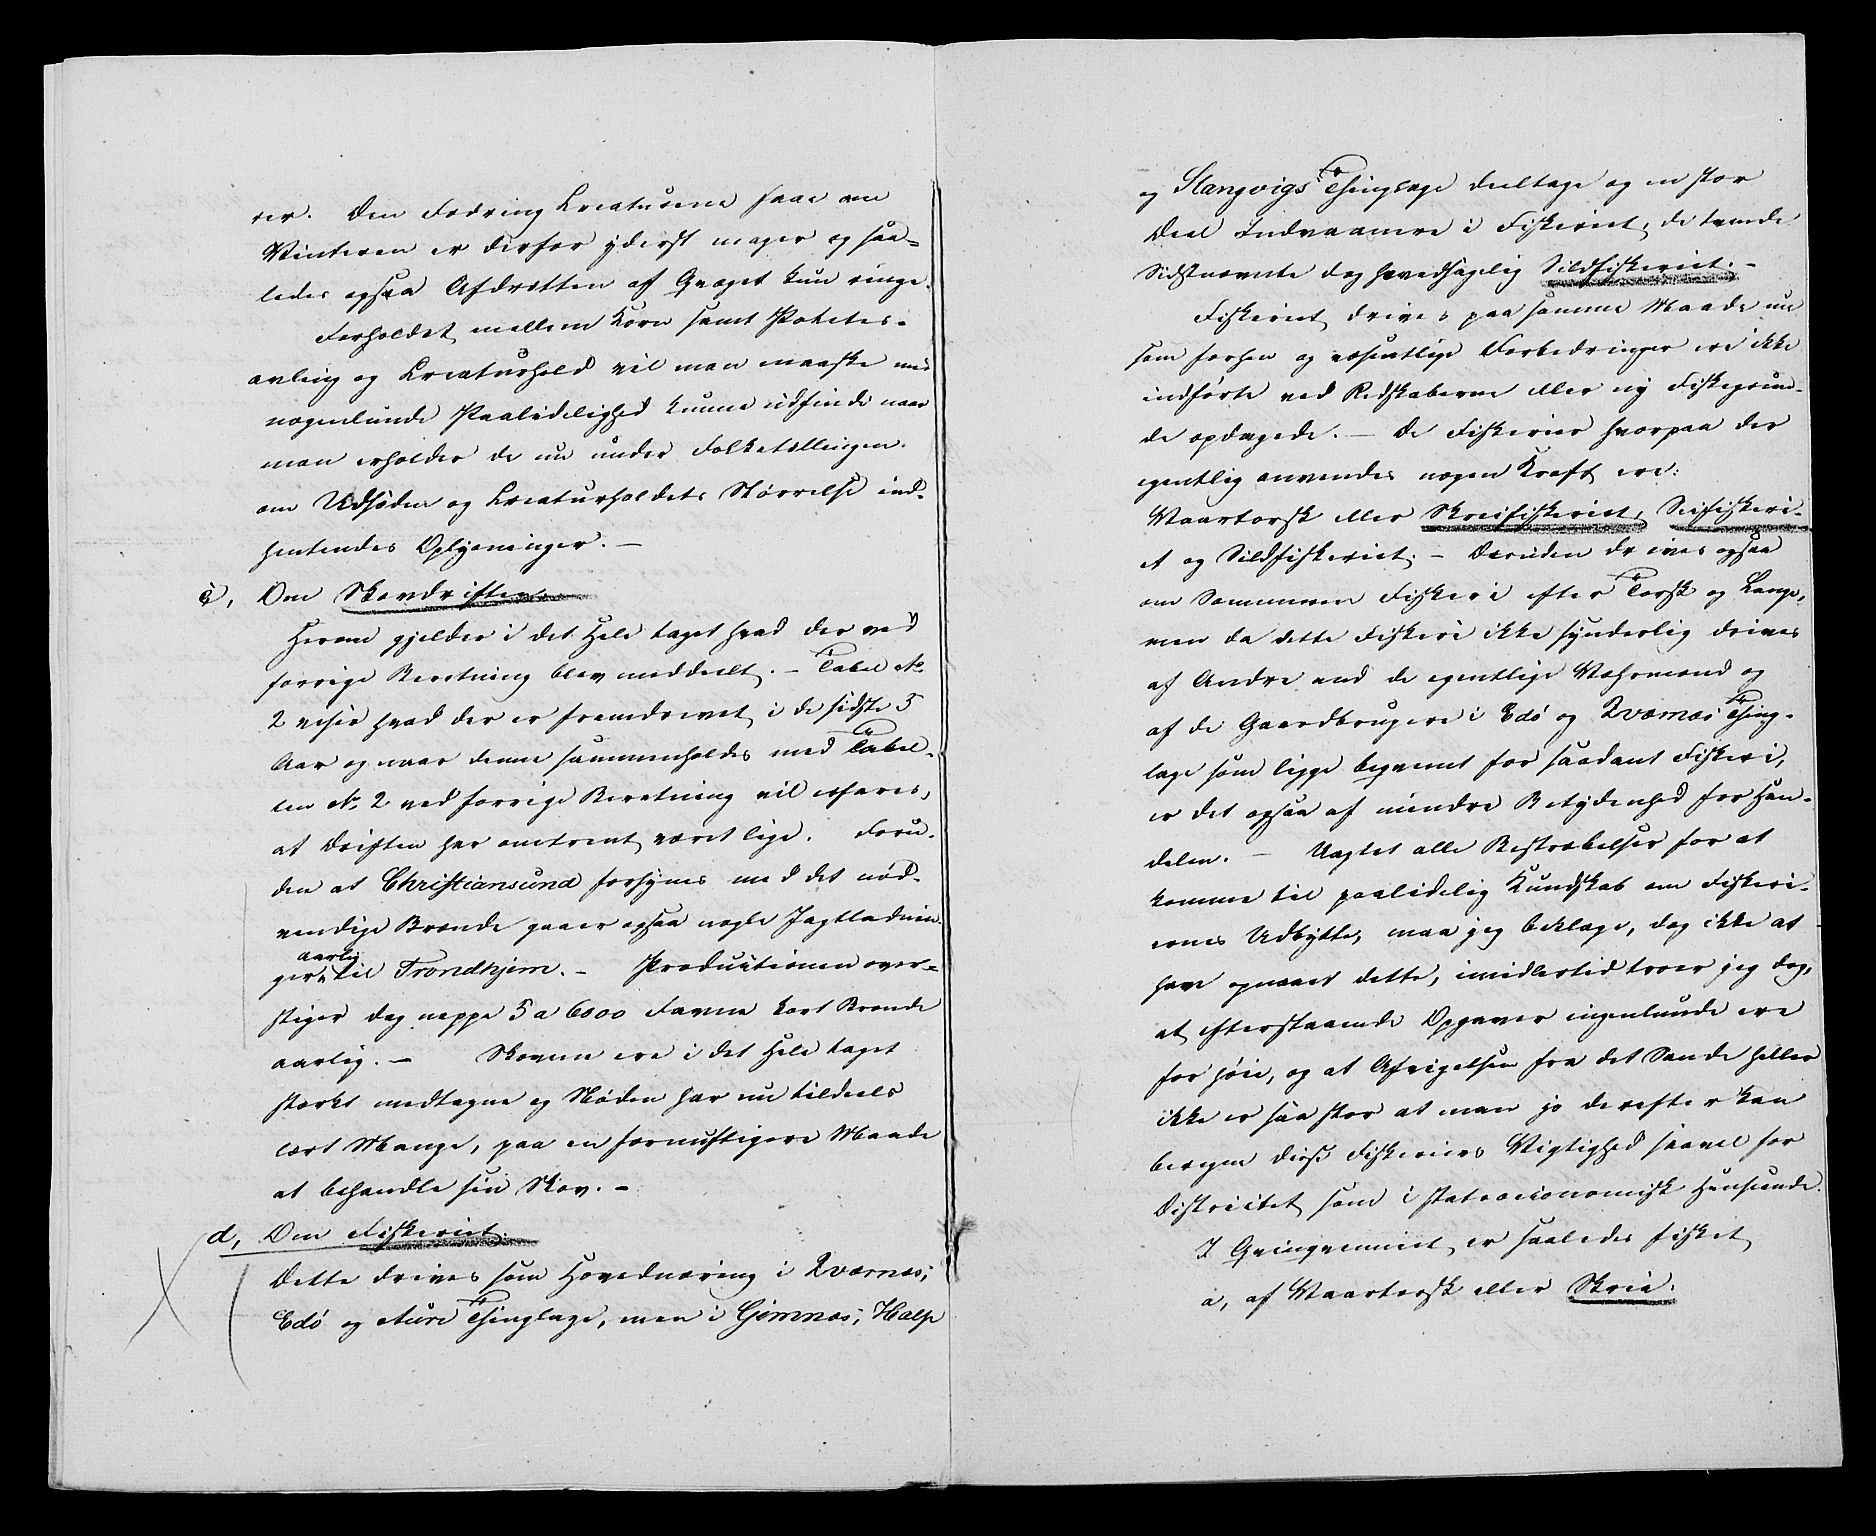 rer. Den Fodring Creaturene faae om
Vinteren er derfor yderst mager og saa-
ledes ogsaa Afdrotten af Qvæget kun ringe.
Forholdet mellem Korn samt Potetes-
avling og Creaturhold vil man maaske med
nogenlunde Paalidelighed kunne udfinde naar
man erholder de nu under Folketællingen
om Udsæden og Creaturholdets Størrelse ind-
hentendes Oplysninger. —
c, Om Skovdriften.
Herom gjelder i det Hele taget hvad der ved
forrige Beretning blev meddeelt. — Tabel No
2 viser hvad der er fremdrevet i de sidste 5
Aar og naar denne sammenholdes med Tabel-
len No 2 ved forrige Beretning vil erfares,
at Driften har omtrent været lige. Foru-
den at Christiansund forsynes med det nød-
vendige Brænde gaaer ogsaa nogle Jagtladnin-
ger aarlig til Trondhjem. — Productionen over-
stiger dog neppe 5 a 6000 Favne kort Brænde
aarlig. — Skovene ere i det Hele taget
stærkt medtagne og Nøden har nu tildeels
lært Mange, paa en fornuftigere Maade
at behandle sin Skov. —
d, Om Fiskeriet.
Dette drives som Hovednæring i Qværnæs;
Edø og Aure Thinglage, men i Gimnæs; Halse
og Stangvigs Thinglage deeltage og en stor
Deel Indvaanere i Fiskeriet, de tvende
Sidstnævnte dog hovedsagelig Sildfiskeriet. —
Fiskeriet drives paa samme Maade nu
som forhen og væsentlige Forbedringer ere ikke
indførte ved Redskaberne eller ny Fiskegrun-
de opdagede. — De Fiskerier hvorpaa der
egentlig anvendes nogen Kraft ere:
Vaartorsk eller Skreifiskeriet, Seifiskeri-
et og Sildfiskeriet. — Desuden drives ogsaa
om Sommeren Fiskeri efter Torsk og Lange,
men da dette Fiskeri ikke synderlig drives
af Andre end de egentlige Værmænd og
af de Gaardbrugere i Edø og Qværnæs Thing-
lage som ligge beqvemt for saadant Fiskeri,
er det ogsaa af mindre Betydenhed for Han-
delen. — Uagtet alle Bestræbelser for at
komme til paalidelig Kundskab om Fiskeri-
ernes Udbytte, maa jeg beklage, dog ikke at
have opnaaet dette, imidlertid troer jeg dog,
at efterstaaende Opgaver ingenlunde ere
for høie, og at Afvigelsen fra det Sande heller
ikke er saa stor at man jo derefter kan
beregne disse Fiskeriers Vigtighed saavel for
Districtet som i statsoeconomisk Henseende.
I Qvinqvenniet er saaledes fisket
a, af Vaartorsk eller Skrei.